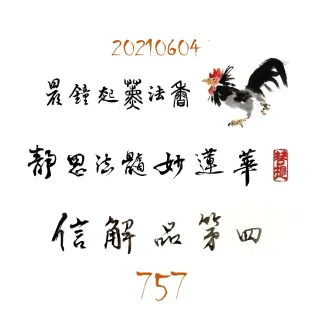 20210604
晨鐘起薰法香
靜思法髓妙蓮華
信解品第四
757